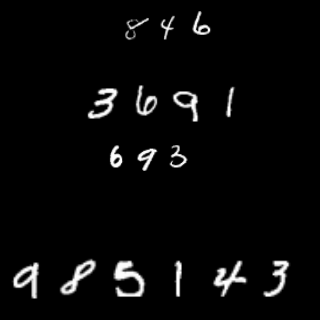 8 4 6
3 6 9 1
6 9 3
9 8 5 1 4 3